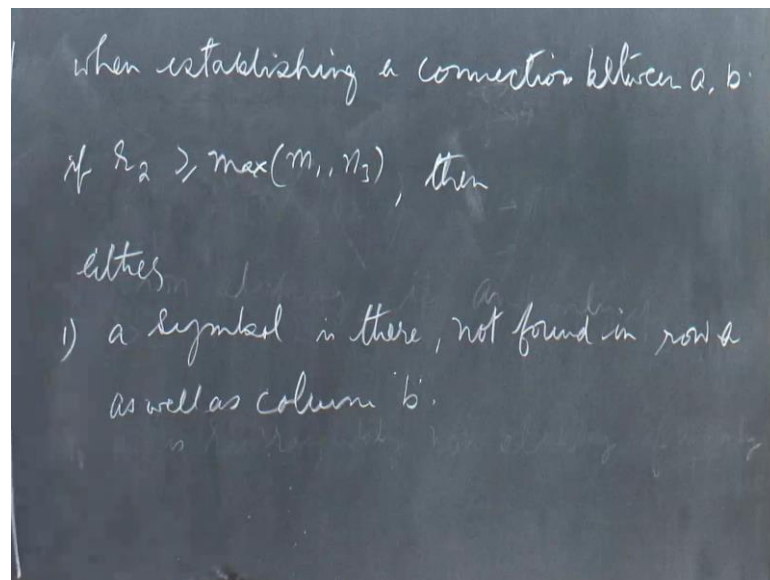 when establishing a connection between a, b.
if r₂ ≥ max(m₁, n₃), then
either
1) a symbol is there, not found in row a
as well as column b.